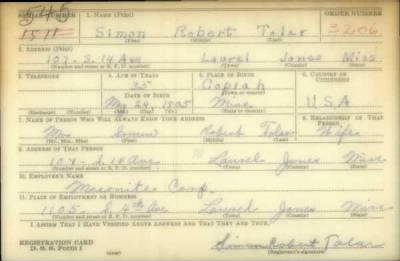 SERIAL NUMBER 1. NAME (Print) ORDER NUMBER
1511 Simon Robert Tolar 3206
(First) (Middle) (Last)
2. ADDRESS (Print)
107 S. 14 Ave Laurel Jones Miss
(Number and street or R. F. D. number) (Town) (County) (State)
3. TELEPHONE 4. AGE IN YEARS 5. PLACE OF BIRTH 6. COUNTRY OF CITIZENSHIP
35 Copiah
DATE OF BIRTH (Town or county)
May 24, 1905 Miss U.S.A
(Exchange) (Number) (Mo.) (Day) (Yr.) (State or country)
7. NAME OF PERSON WHO WILL ALWAYS KNOW YOUR ADDRESS 8. RELATIONSHIP OF THAT PERSON
Mrs Simon Robert Tolar Wife
(Mr., Mrs., Miss) (First) (Middle) (Last)
9. ADDRESS OF THAT PERSON
107 S. 14 Ave Laurel Jones Miss
(Number and street or R. F. D. number) (Town) (County) (State)
10. EMPLOYER'S NAME
Masonite Corp.
11. PLACE OF EMPLOYMENT OR BUSINESS
1105 S. 4th Ave Laurel Jones Miss
(Number and street or R. F. D. number) (Town) (County) (State)
I AFFIRM THAT I HAVE VERIFIED ABOVE ANSWERS AND THAT THEY ARE TRUE.
REGISTRATION CARD
D. S. S. Form 1 Simon Robert Tolar
(Registrant's signature)